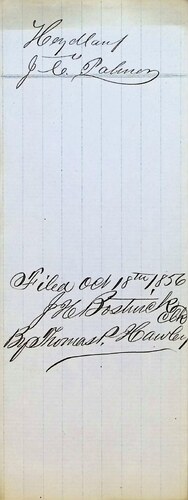 Heydlauf
to
J. C. Palmer
Filed Oct 18th, 1856
J H Bostwick
Clk
By Thomas P. Hawley